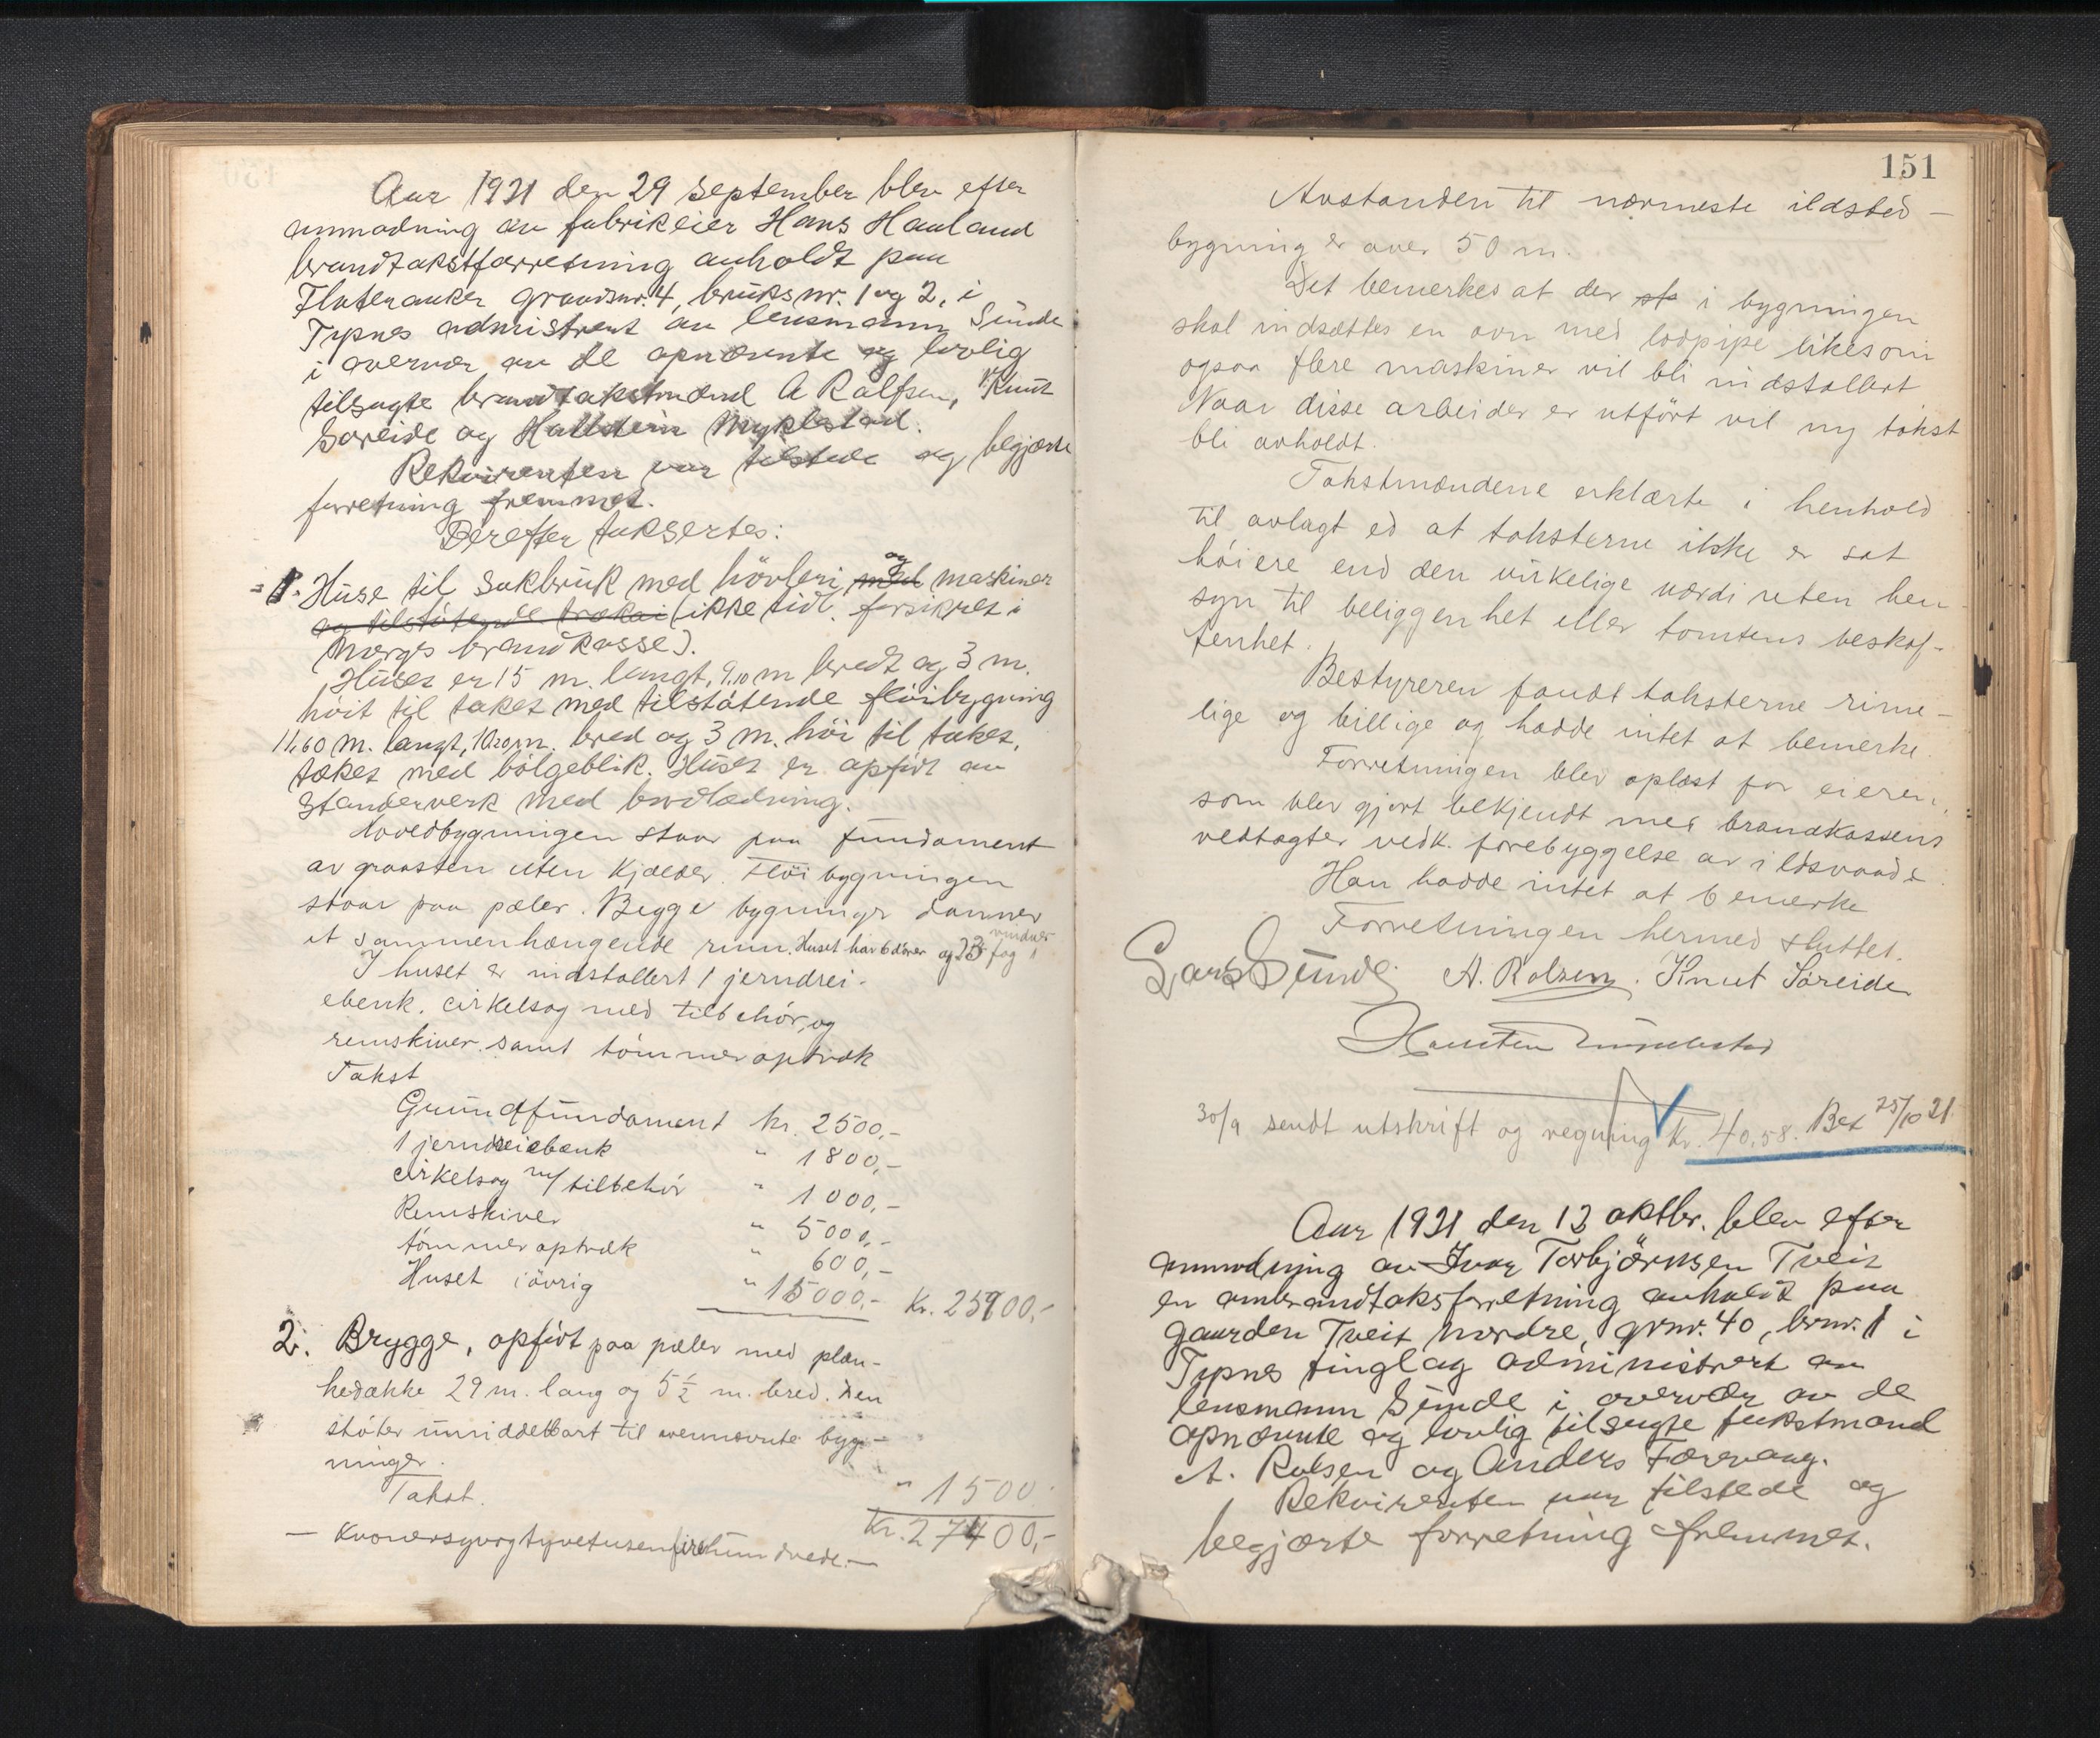 Aar 1921 den 29 september blev efter
anmodning av fabrikeier Hans Hauland
brandtakstforretning avholdt paa
Flateraaker grundsnr. 4, bruksnr. 1 og 2, i
Tysnes admistrert av lensmann Sunde
i overvær av de opnævnte og lovlig
tilsagte brandtakstmænd A Rolfsen, Knut
Søreide og Hallstein Myklestad.
Rekvirenten var tilstede og begjærte
forretning fremmet.
Derefter taksertes:
1. Huse til sakbruk med hövleri med og maskiner
og tilstötende trækai (ikke tidl. forsikret i
Norges brandkasse).
Huset er 15 m. langt, 9,10 m bredt og 3 m.
höit til taket med tilstötende flöibygning
11,60 m. langt, 10,20 m. bred og 3 m. höi til taket,
tækt med bölgeblik. Huset er opfört av
standerverk med bordklædning.
Hovedbygningen staar paa fundament
av graasten uten kjælder. Flöi bygningen
staar paa pæler. Begge bygninger danner
et sammenhængende rum. Huset har 6 dörer og 23 fag vinduer
I huset er indstallert 1 jerndrei-
ebenk. cirkelsag med tilbehör, og
remskiver samt tömmeroptræk
Takst
Grundfundament kr. 2500,-
1 jerndreiebænk " 1800,-
cirkelsag m/ tilbehör " 1000,-
Remskiver " 5000,-
tömmeroptræk " 600,-
Huset i övrig " 15000,- Kr. 25900,-
2. Brygge, opfört paa pæler med plan-
kedække 29 m. lang og 5 1/2 m. bred. Den
stöter umiddelbart til ovennævnte byg-
ninger.
Takst. " 1500.
Kr. 27400,-
— Kronersyvogtyvetusenfirehundrede.—
151
Avstanden til nærmeste ildsted-
bygning er over 50 m.
Det bemerkes at der sta i bygningen
skal indsættes en ovn med lodpipe likesom
ogsaa flere maskiner vil bli indstallert
Naar disse arbeider er utfört vil ny takst
bli avholdt.
Takstmændene erklærte i henhold
til avlagt ed at taksterne ikke er sat
höiere end den virkelige værdi uten hen-
syn til beliggenhet eller tomtens beskaf-
fenhet.
Bestyreren fandt taksterne rime-
lige og billige og hadde intet at bemerke.
Forretningen blev oplæst for eieren,
som blev gjort bekjendt med brandkassens
vedtægter vedk. forebyggelse av ildsvaade.
Han hadde intet at bemerke
Forretningen hermed sluttet.
Lars Sunde. A. Rolsen. Knut Söreide
Hallstein Myklestad
30/9 sendt utskrift og regning Kr. 40,58. Bet 25/10 21.
Aar 1921 den 13 oktbr. blev efter
anmodning av Ivar Torbjørnsen Tveit
en ombrandtaksforretning avholdt paa
gaarden Tveit nordre, grnr. 40, brnr. 1 i
Tysnes tinglag administrert av
lensmann Sunde i overvær av de
opnævnte og lovlig tilsagte takstmænd
A. Rolsen og Anders Færevaag.
Rekvirenten var tilstede og
begjærte forretning fremmet.